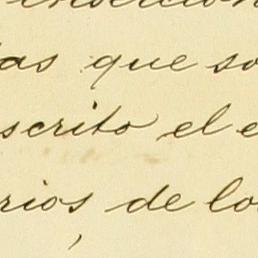 as que so
scrito el e
rios, de lo